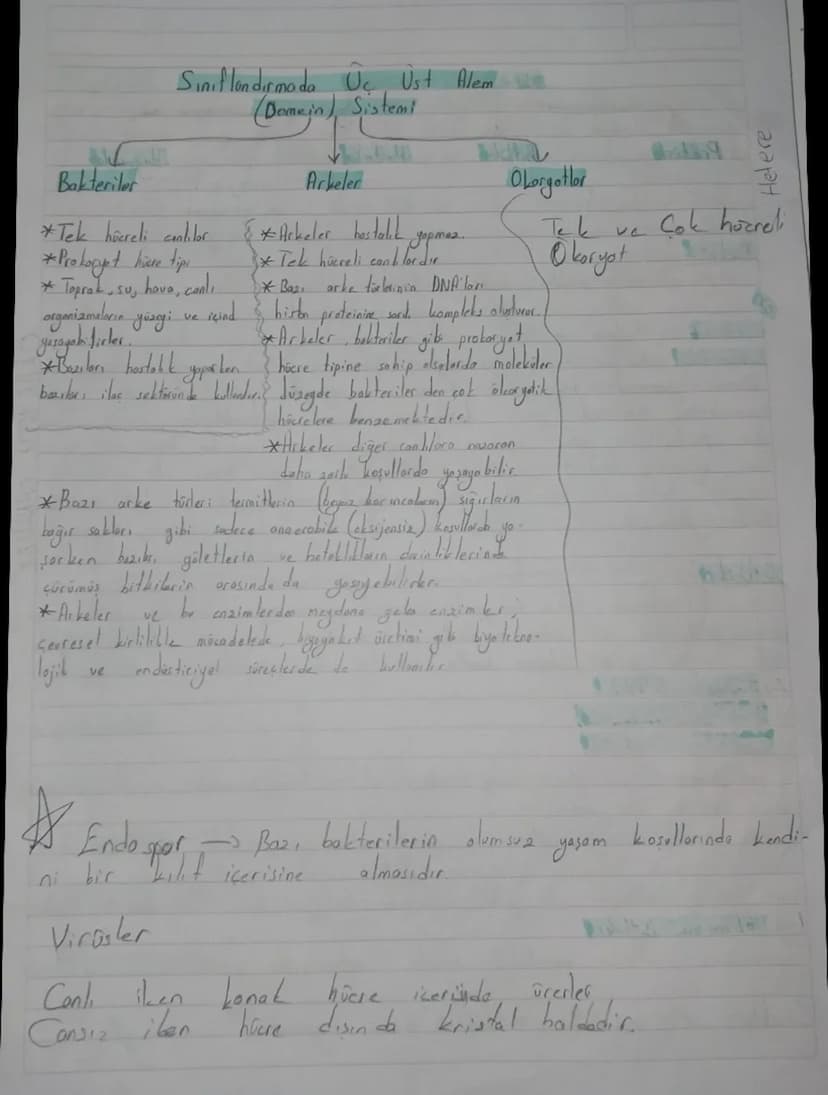 Sınıflandırmada Üç Üst Alem
(Domein) Sistemi
Bakteriler
Arkeler
Ökoryotlar
Helere
*Tek hücreli canlılar
*Prokaryot hücre tipi
* Toprak, su, hava, canlı
organizmaların yüzeyi ve içind
yaşayabilirler.
*Bazıları hastalık yaparken
bazıları ilaç sektöründe kullanılır.
*Arkeler hastalık yapmaz.
* Tek hücreli canlılardır
* Bazı arke türlerinin DNA'ları
histon proteinine sarılı kompleks oluşturur.
*Arkeler, bakteriler gibi prokaryot
hücre tipine sahip olsalarda moleküler
düzeyde bakteriler den çok ökaryotik
hücrelere benzemektedir.
*Arkeler diğer canlılara nazaran
daha zorlu koşullarda yaşayabilir
Tek ve Çok hücreli
Ökaryot
*Bazı arke türleri termitlerin (beyaz karıncaların) sığırların
bağırsakları gibi sadece anaerobik (oksijensiz) koşullarda ya-
şarken bazıları, göletlerin ve bataklıkların derinliklerinde
çürümüş bitkilerin arasında da yaşayabilirler.
*Arkeler ve bu enzimlerden meydana gelen enzimler;
çevresel kirlilikle mücadelede, biyoyakıt üretimi gibi biyotekno-
lojik ve endüstiriyel süreçlerde de kullanılır
Endospor → Bazı bakterilerin olumsuz yaşam koşullarında kendi-
ni bir kılıf içerisine almasıdır.
Virüsler
Canlı iken konak hücre içerisinde ürerler
Cansız iken hücre dışında kristal haldedir.